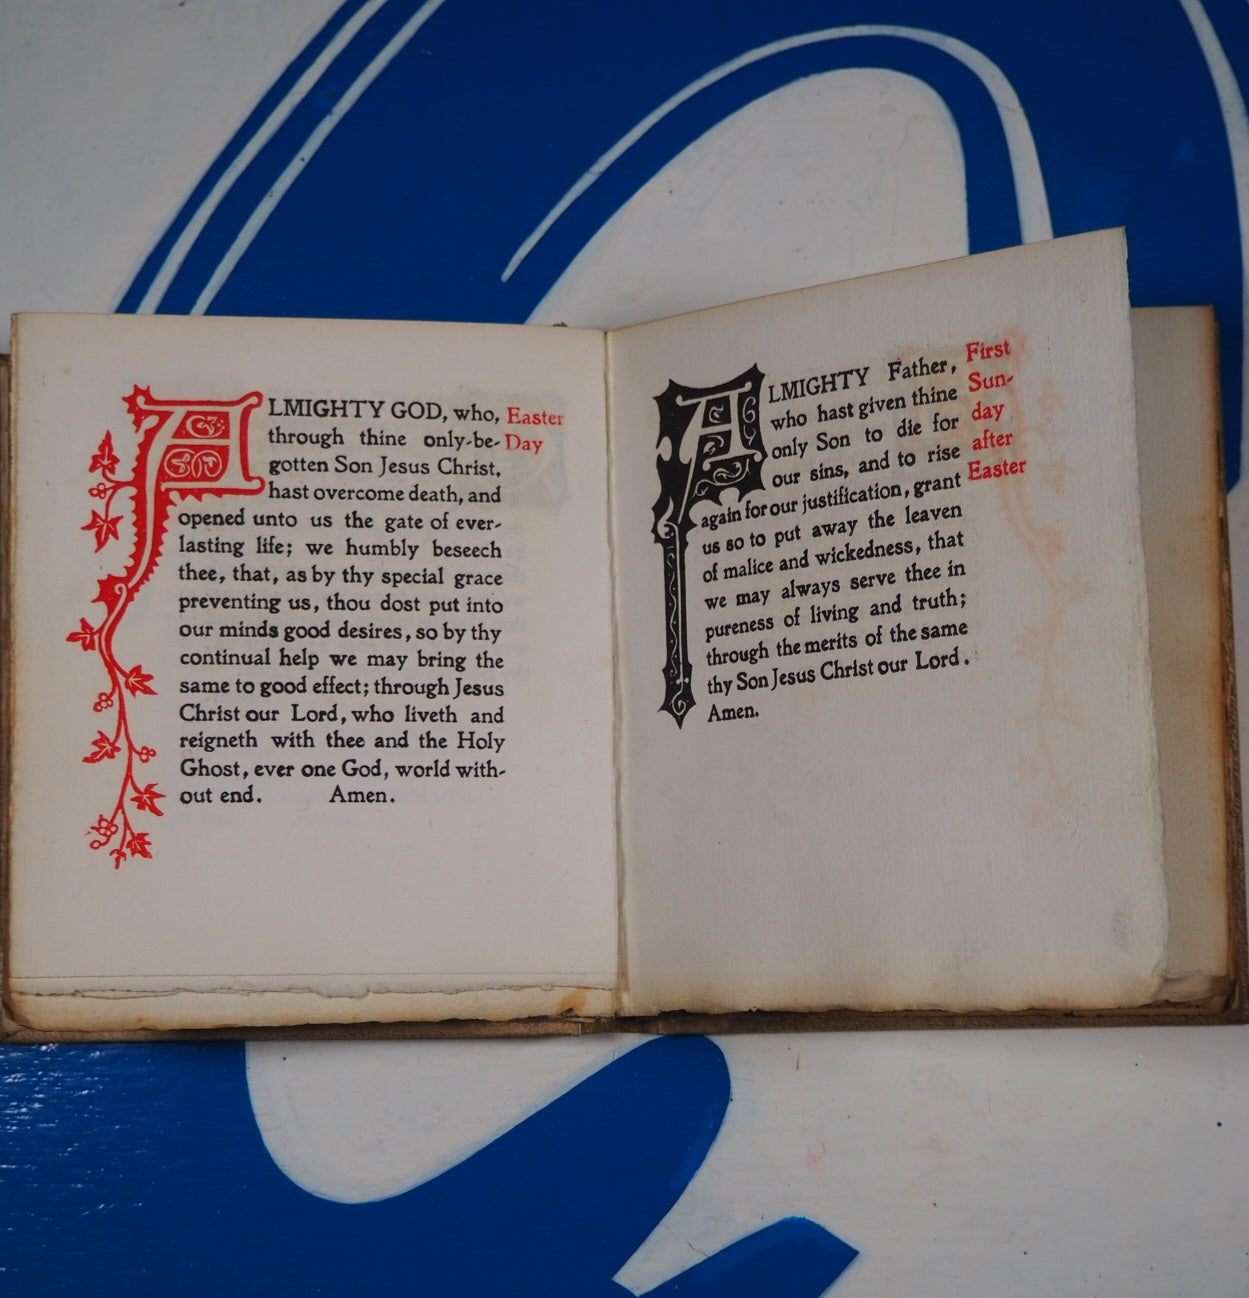 ALMIGHTY GOD, who, Easter
through thine only-be- Day
gotten Son Jesus Christ,
hast overcome death, and
opened unto us the gate of ever-
lasting life; we humbly beseech
thee, that, as by thy special grace
preventing us, thou dost put into
our minds good desires, so by thy
continual help we may bring the
same to good effect; through Jesus
Christ our Lord, who liveth and
reigneth with thee and the Holy
Ghost, ever one God, world with-
out end. Amen.
ALMIGHTY Father, First
who hast given thine Sun-
only Son to die for day
our sins, and to rise after
again for our justification, grant Easter
us so to put away the leaven
of malice and wickedness, that
we may always serve thee in
pureness of living and truth;
through the merits of the same
thy Son Jesus Christ our Lord.
Amen.